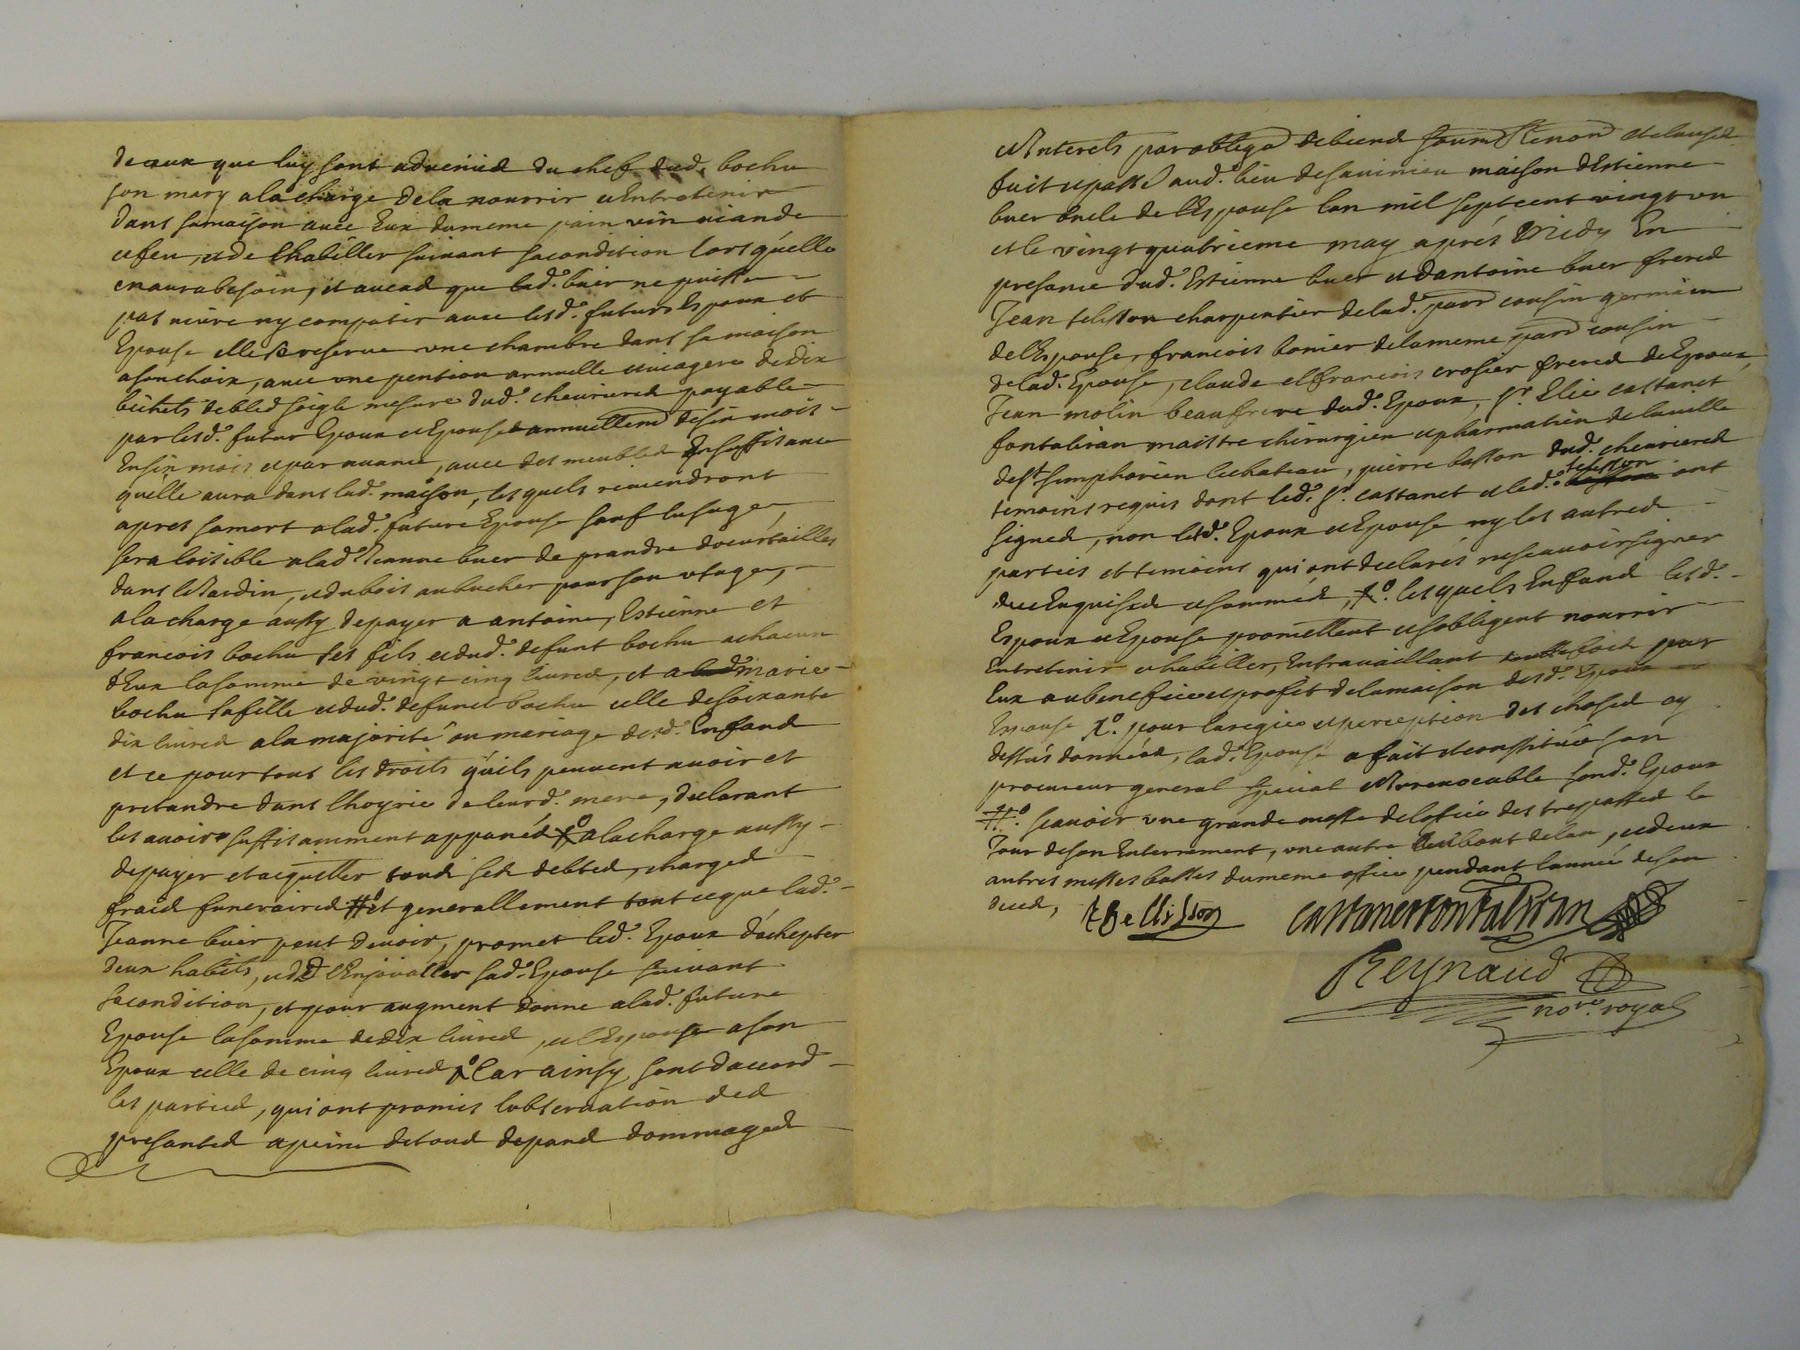 de ceux que luy sont advenus du chef dud. bochu
son mary a la charge de la nourrir et Entretenir
dans sa maison avec Eux du meme pain vin viande
et feu, et de lhabiller suivant sa condition lors qu'elle
en aura besoin, et au cas que lad.e buer ne puisse
pas vivre ny compatir avec lesd. futurs Espoux et
Epouse elle se reserve une chambre dans sa maison
a son choix, avec une pention annuelle et viagere de dix
bichets de bled soigle mesure dud. chevrieres payable
par lesd. futur Epoux et Epouse annuellemt de six mois
En six mois et par avance, avec des meubles En suffisance
qu'elle aura dans lad. maison, les quels reviendront
apres sa mort a lad. future Epouse sauf lusage,
sera loisible a lad. Jeanne buer de prandre d'oeurtailles
dans le Jardin, et du bois au bucher pour son usage,
a la charge aussy de payer a antoine, Estienne et
francois bochu ses fils et dud. defunt bochu a chacun
d'Eux la somme de vingt cinq livres, et a marie
bochu sa fille et dud. defunct bochu celle de soixante
dix livres a la majorité ou mariage desd. Enfans
et ce pour tous les droits qu'ils peuvent avoir et
pretandre dans lhoyrie de leurd. mere, declarant
les avoir suffisamment appanés X° a la charge aussy
de payer et aquitter tous ses debtes, charges
frais funeraires #° et generallement tout ce que lad.
Jeanne buer peut devoir, promet led. Epoux d'achepter
deux habits, et d'Enjoialler sad. Epouse suivant
sa condition, et pour augment donne a lad. future
Epouse la somme de dix livres, et l'Espouse a son
Epoux celle de cinq livres X° Car ainsy sont daccord
les parties, qui ont promis lobservation des
presantes a peine de tous depans dommages
et Interets par obliga.on de biens soum.on Renon.on et clauses
fait et passé aud. lieu de savinieu maison d'Estienne
buer oncle de l'Espouse lan mil sept cent vingt un
et le vingt quatrieme may aprés Midy En
presance dud. Estienne buer et d'antoine buer freres
Jean telisson charpentier de lad. parr. cousin germain
de l'Espouse, francois bonier de la meme parr. cousin
de lad. Epouse, claude et francois crosier freres de Epoux,
Jean molin beaufrere dud. Epoux, Sr. Elie castanet
fontaliran maistre chirurgien et pharmatien de la ville
de St. simphorien le chateau, pierre basson dud. chevrieres
temoins requis dont led. Sr. castanet et led. telisson ont
signes, non lesd. Epoux et Epouse ny les autres
parties et temoins qui ont declarés ne scavoir signer
de ce Enquises et sommés, X° les quels Enfans lesd.
Espoux et Epouse promettent et s'obligent nourrir
Entretenir et habiller, En travaillant par
Eux au benefice et profit de la maison desd. Epoux et
Espouse X° pour la regie et perception des choses cy
dessus données, lad. Epouse a fait et constitué son
procureur general special et Irrevocable sond. Epoux
#° scavoir une grande messe de l'office des trespasses le
Jour de son Enterrement, une autre au bout de lan, et deux
autres messes basses du meme office pendant lannée de son
deces,
castanet fontaliran
Reynaud
no.re royal